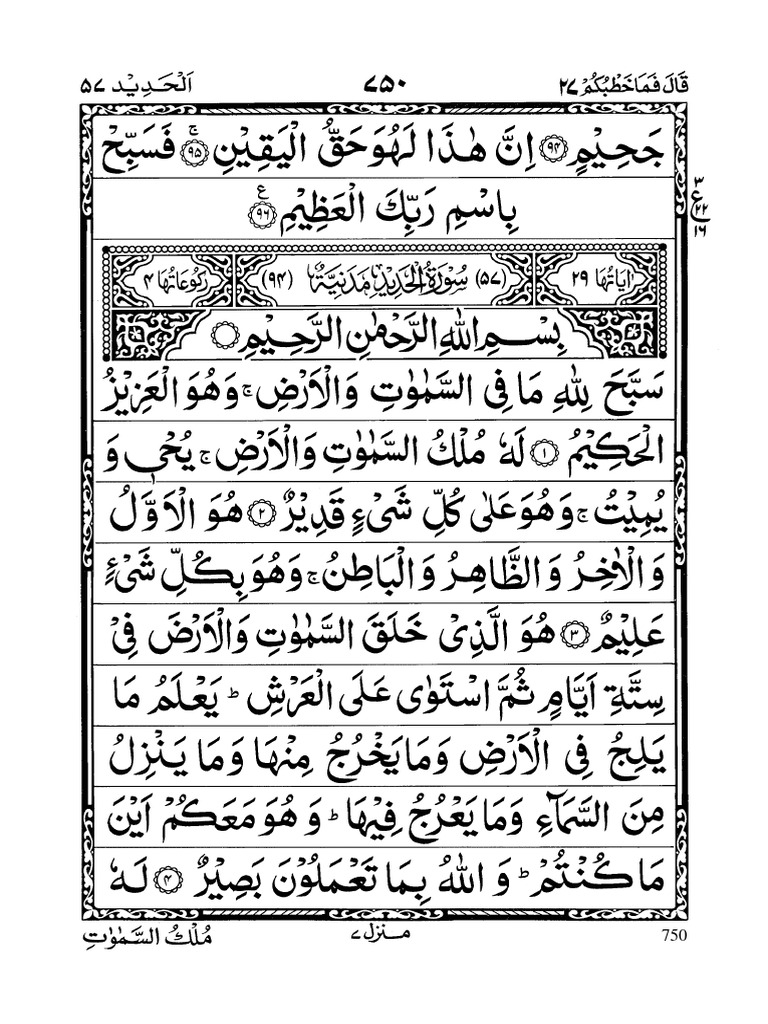 قَالَ فَمَا خَطْبُكُمْ ۲۷
۷۵۰
اَلْحَدِيْد ۵۷
جَحِيْمٍ ۹۴ اِنَّ هٰذَا لَهُوَ حَقُّ الْيَقِيْنِ ج ۹۵ فَسَبِّحْ
بِاسْمِ رَبِّكَ الْعَظِيْمِ ع ۹۶
۳ ع ۲۲ ۱۶
اٰيَاتُهَا ۲۹ (۵۷) سُوْرَةُ الْحَدِيْدِ مَدَنِيَّةٌ (۹۴) رُكُوْعَاتُهَا ۴
بِسْمِ اللهِ الرَّحْمٰنِ الرَّحِيْمِ
سَبَّحَ لِلّٰهِ مَا فِى السَّمٰوٰتِ وَالْاَرْضِ ج وَهُوَ الْعَزِيْزُ
الْحَكِيْمُ ۱ لَهٗ مُلْكُ السَّمٰوٰتِ وَالْاَرْضِ ج يُحْىٖ وَ
يُمِيْتُ ج وَهُوَ عَلٰى كُلِّ شَىْءٍ قَدِيْرٌ ۲ هُوَ الْاَوَّلُ
وَالْاٰخِرُ وَالظَّاهِرُ وَالْبَاطِنُ ج وَهُوَ بِكُلِّ شَىْءٍ
عَلِيْمٌ ۳ هُوَ الَّذِىْ خَلَقَ السَّمٰوٰتِ وَالْاَرْضَ فِىْ
سِتَّةِ اَيَّامٍ ثُمَّ اسْتَوٰى عَلَى الْعَرْشِ ط يَعْلَمُ مَا
يَلِجُ فِى الْاَرْضِ وَمَا يَخْرُجُ مِنْهَا وَمَا يَنْزِلُ
مِنَ السَّمَآءِ وَمَا يَعْرُجُ فِيْهَا ط وَهُوَ مَعَكُمْ اَيْنَ
مَا كُنْتُمْ ط وَاللهُ بِمَا تَعْمَلُوْنَ بَصِيْرٌ ۴ لَهٗ
750
منزل ۷
مُلْكُ السَّمٰوٰتِ